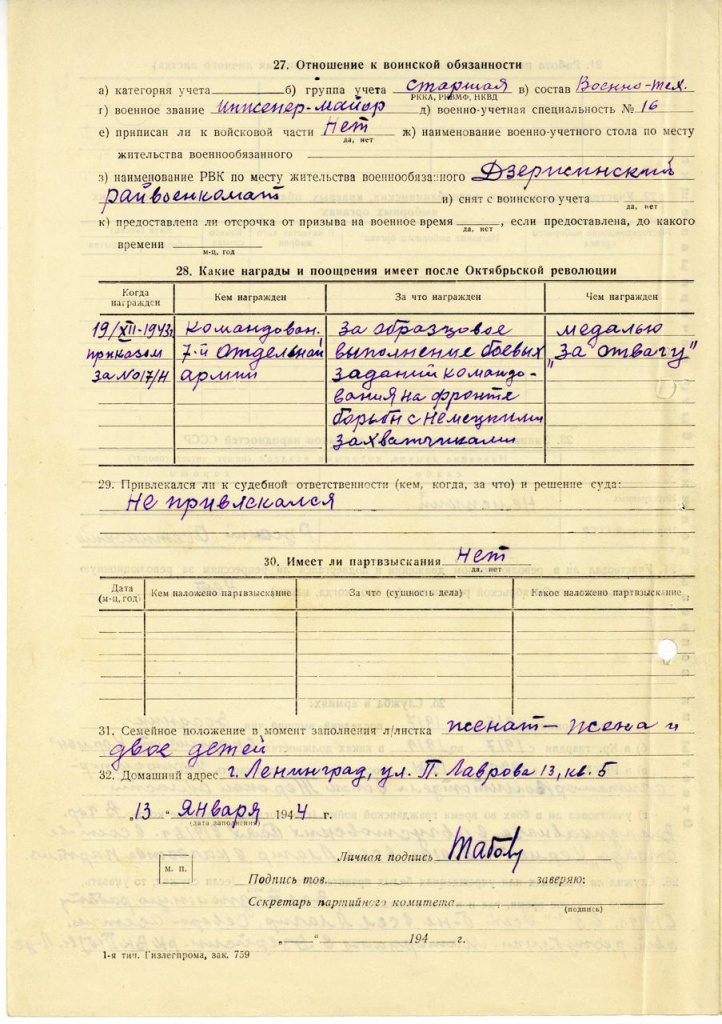 27. Отношение к воинской обязанности
а) категория учета б) группа учета старшая в) состав Военно-тех.
РККА, РКВМФ, НКВД
г) военное звание инженер-майор д) военно-учетная специальность № 16
е) приписан ли к войсковой части Нет ж) наименование военно-учетного стола по месту
да, нет
жительства военнообязанного
з) наименование РВК по месту жительства военнообязанного Дзержинский
райвоенкомат и) снят с воинского учета
да, нет
к) предоставлена ли отсрочка от призыва на военное время , если предоставлена, до какого
да, нет
времени
м-ц, год
28. Какие награды и поощрения имеет после Октябрьской революции
Когда награжден Кем награжден За что награжден Чем награжден
19/XII-1943г. командован. За образцовое медалью
приказом 7-й отдельной выполнение боевых "За отвагу"
за №017/Н армии заданий командо-
вания на фронте
борьбы с немецкими
захватчиками
29. Привлекался ли к судебной ответственности (кем, когда, за что) и решение суда:
Не привлекался
30. Имеет ли партвзыскания Нет
да, нет
Дата (м-ц, год) Кем наложено партвзыскание За что (сущность дела) Какое наложено партвзыскание
31. Семейное положение в момент заполнения л/листка женат – жена и
двое детей
32. Домашний адрес г. Ленинград, ул. П. Лаврова 13, кв. 5
„13" Января 1944 г.
(дата заполнения)
Личная подпись
м. п.
Подпись тов. заверяю:
Секретарь партийного комитета
(подпись)
„ " 194 г.
1-я тип. Гизлегпрома, зак. 759